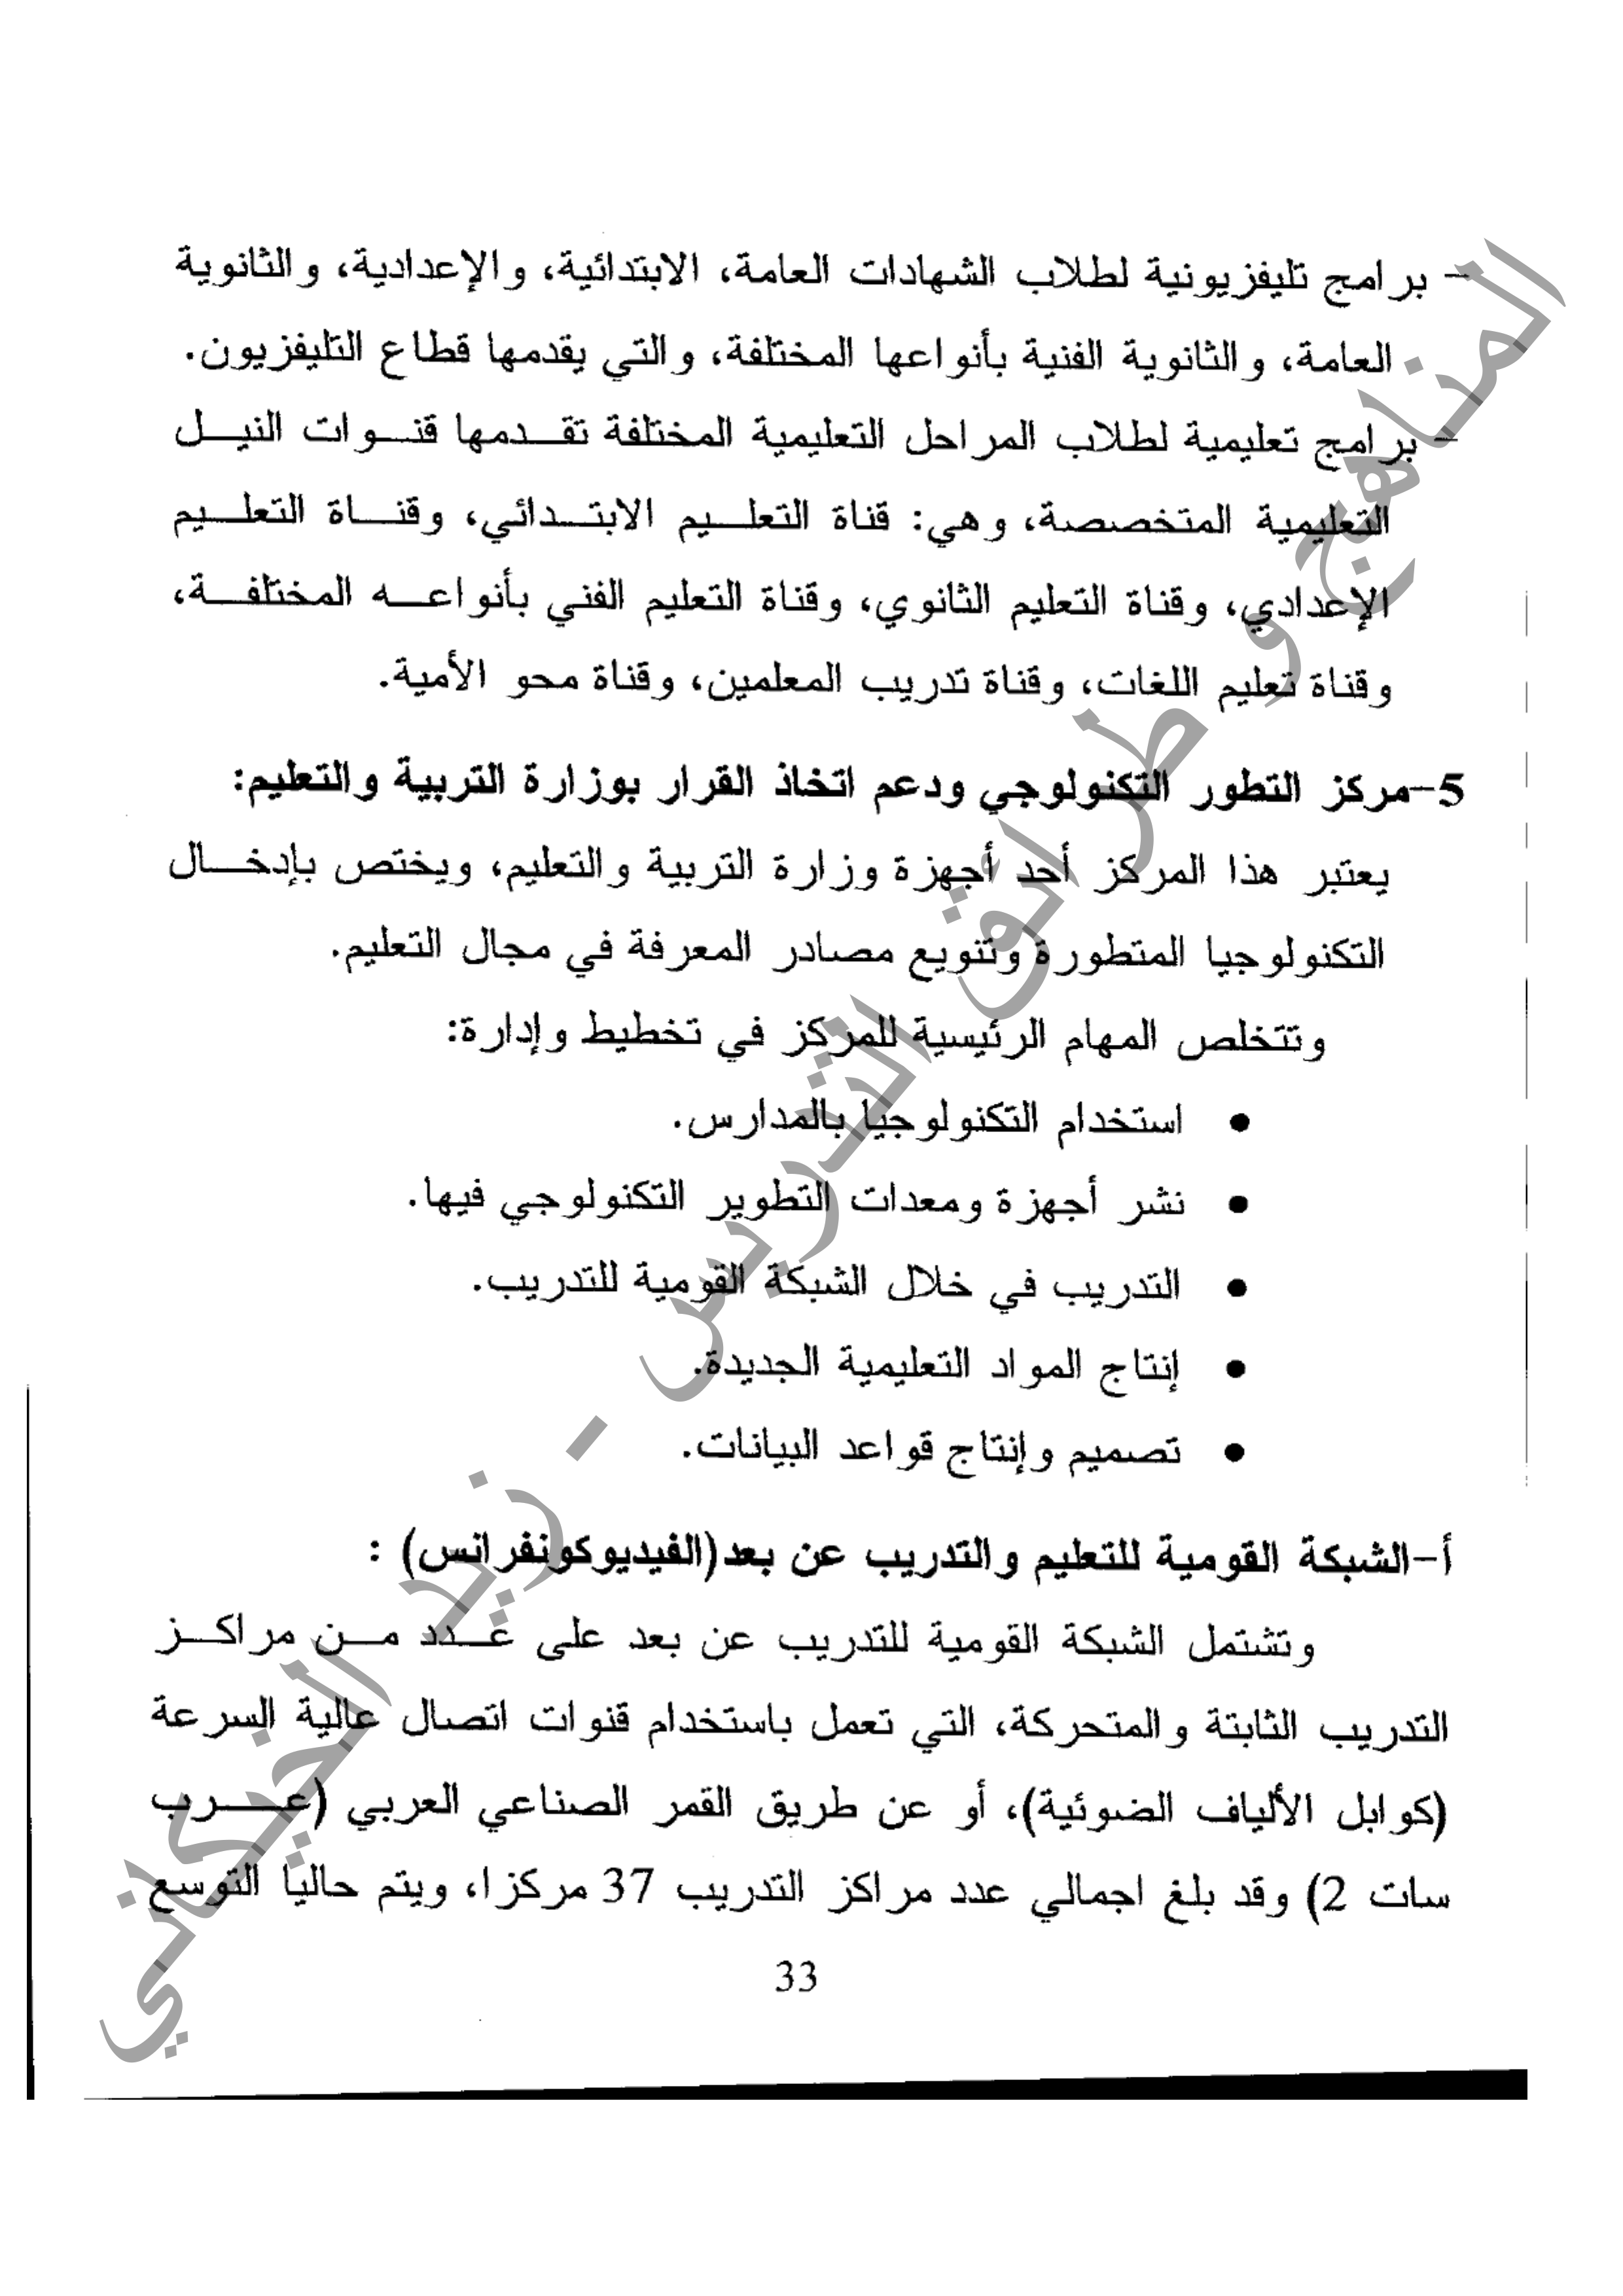 - برامج تليفزيونية لطلاب الشهادات العامة، الابتدائية، والإعدادية، والثانوية
العامة، والثانوية الفنية بأنواعها المختلفة، والتي يقدمها قطاع التليفزيون.
- برامج تعليمية لطلاب المراحل التعليمية المختلفة تقدمها قنوات النيل
التعليمية المتخصصة، وهي: قناة التعليم الابتدائي، وقناة التعليم
الإعدادي، وقناة التعليم الثانوي، وقناة التعليم الفني بأنواعه المختلفة،
وقناة تعليم اللغات، وقناة تدريب المعلمين، وقناة محو الأمية.
5-مركز التطور التكنولوجي ودعم اتخاذ القرار بوزارة التربية والتعليم:
يعتبر هذا المركز أحد أجهزة وزارة التربية والتعليم، ويختص بإدخال
التكنولوجيا المتطورة وتنويع مصادر المعرفة في مجال التعليم.
وتتخلص المهام الرئيسية للمركز في تخطيط وإدارة:
• استخدام التكنولوجيا بالمدارس.
• نشر أجهزة ومعدات التطوير التكنولوجي فيها.
• التدريب في خلال الشبكة القومية للتدريب.
• إنتاج المواد التعليمية الجديدة.
• تصميم وإنتاج قواعد البيانات.
أ-الشبكة القومية للتعليم والتدريب عن بعد(الفيديوكونفرانس) :
وتشتمل الشبكة القومية للتدريب عن بعد على عدد من مراكز
التدريب الثابتة والمتحركة، التي تعمل باستخدام قنوات اتصال عالية السرعة
(كوابل الألياف الضوئية)، أو عن طريق القمر الصناعي العربي (عرب
سات 2) وقد بلغ اجمالي عدد مراكز التدريب 37 مركزا، ويتم حاليا التوسع
33
المناهج و طرائق التدريس - زيد الخيكاني